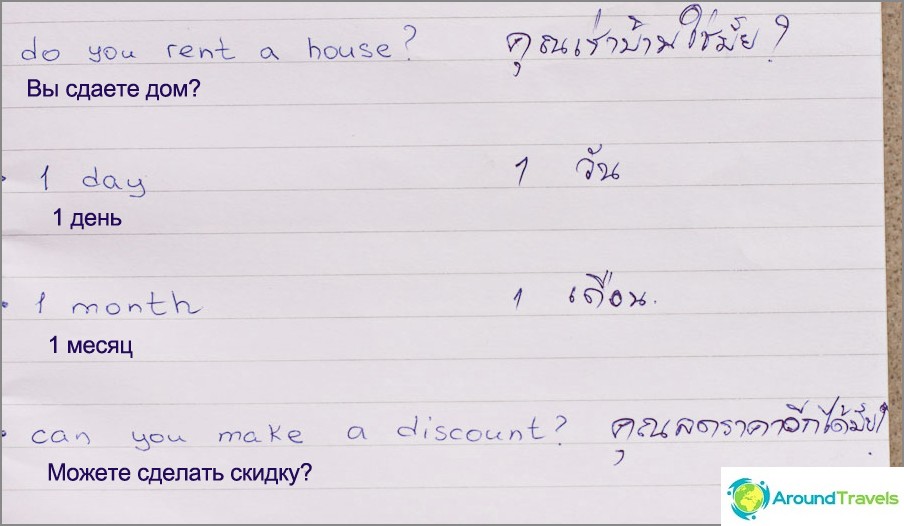 do you rent a house? คุณเช่าบ้านใช่มั้ย?
Вы сдаете дом?
1 day 1 วัน
1 день
1 month 1 เดือน.
1 месяц
can you make a discount? คุณลดราคาอีกได้มั้ย?
Можете сделать скидку?
AroundTravels